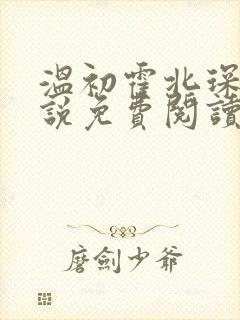 溫初霍北琛
說免費閱讀
磨劍少爺